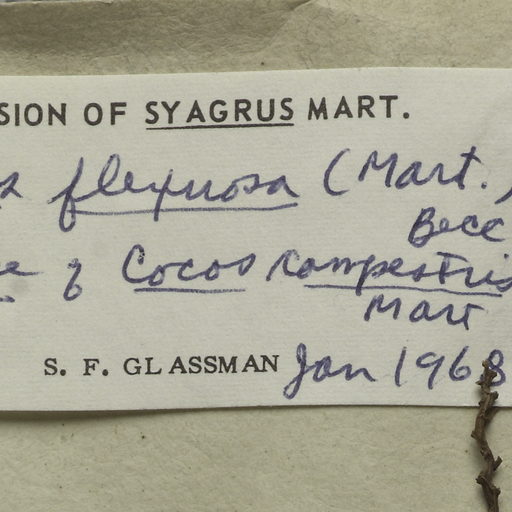 SION OF SYAGRUS MART.
flexuosa (Mart.)
Becc
of Cocos campestris
Mart
S. F. GLASSMAN Jan 1968